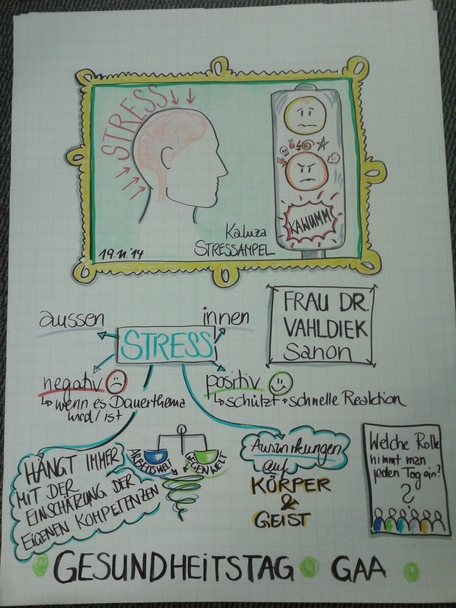 STRESS
KAWUMM!
Kaluza
STRESSAMPEL
19.11.'14
aussen
innen
STRESS
FRAU DR.
VAHLDIEK
Sanon
negativ
↳ wenn es Dauerthema
wird / ist
positiv
↳ schützt → schnelle Reaktion
HÄNGT IMMER
MIT DER
EINSCHÄRUNG DER
EIGENEN KOMPETENZEN
ARBEITSWELT
GEGENWELT
Auswirkungen
auf
KÖRPER
&
GEIST
Welche Rolle
nimmt man
jeden Tag ein?
?
GESUNDHEITSTAG GAA